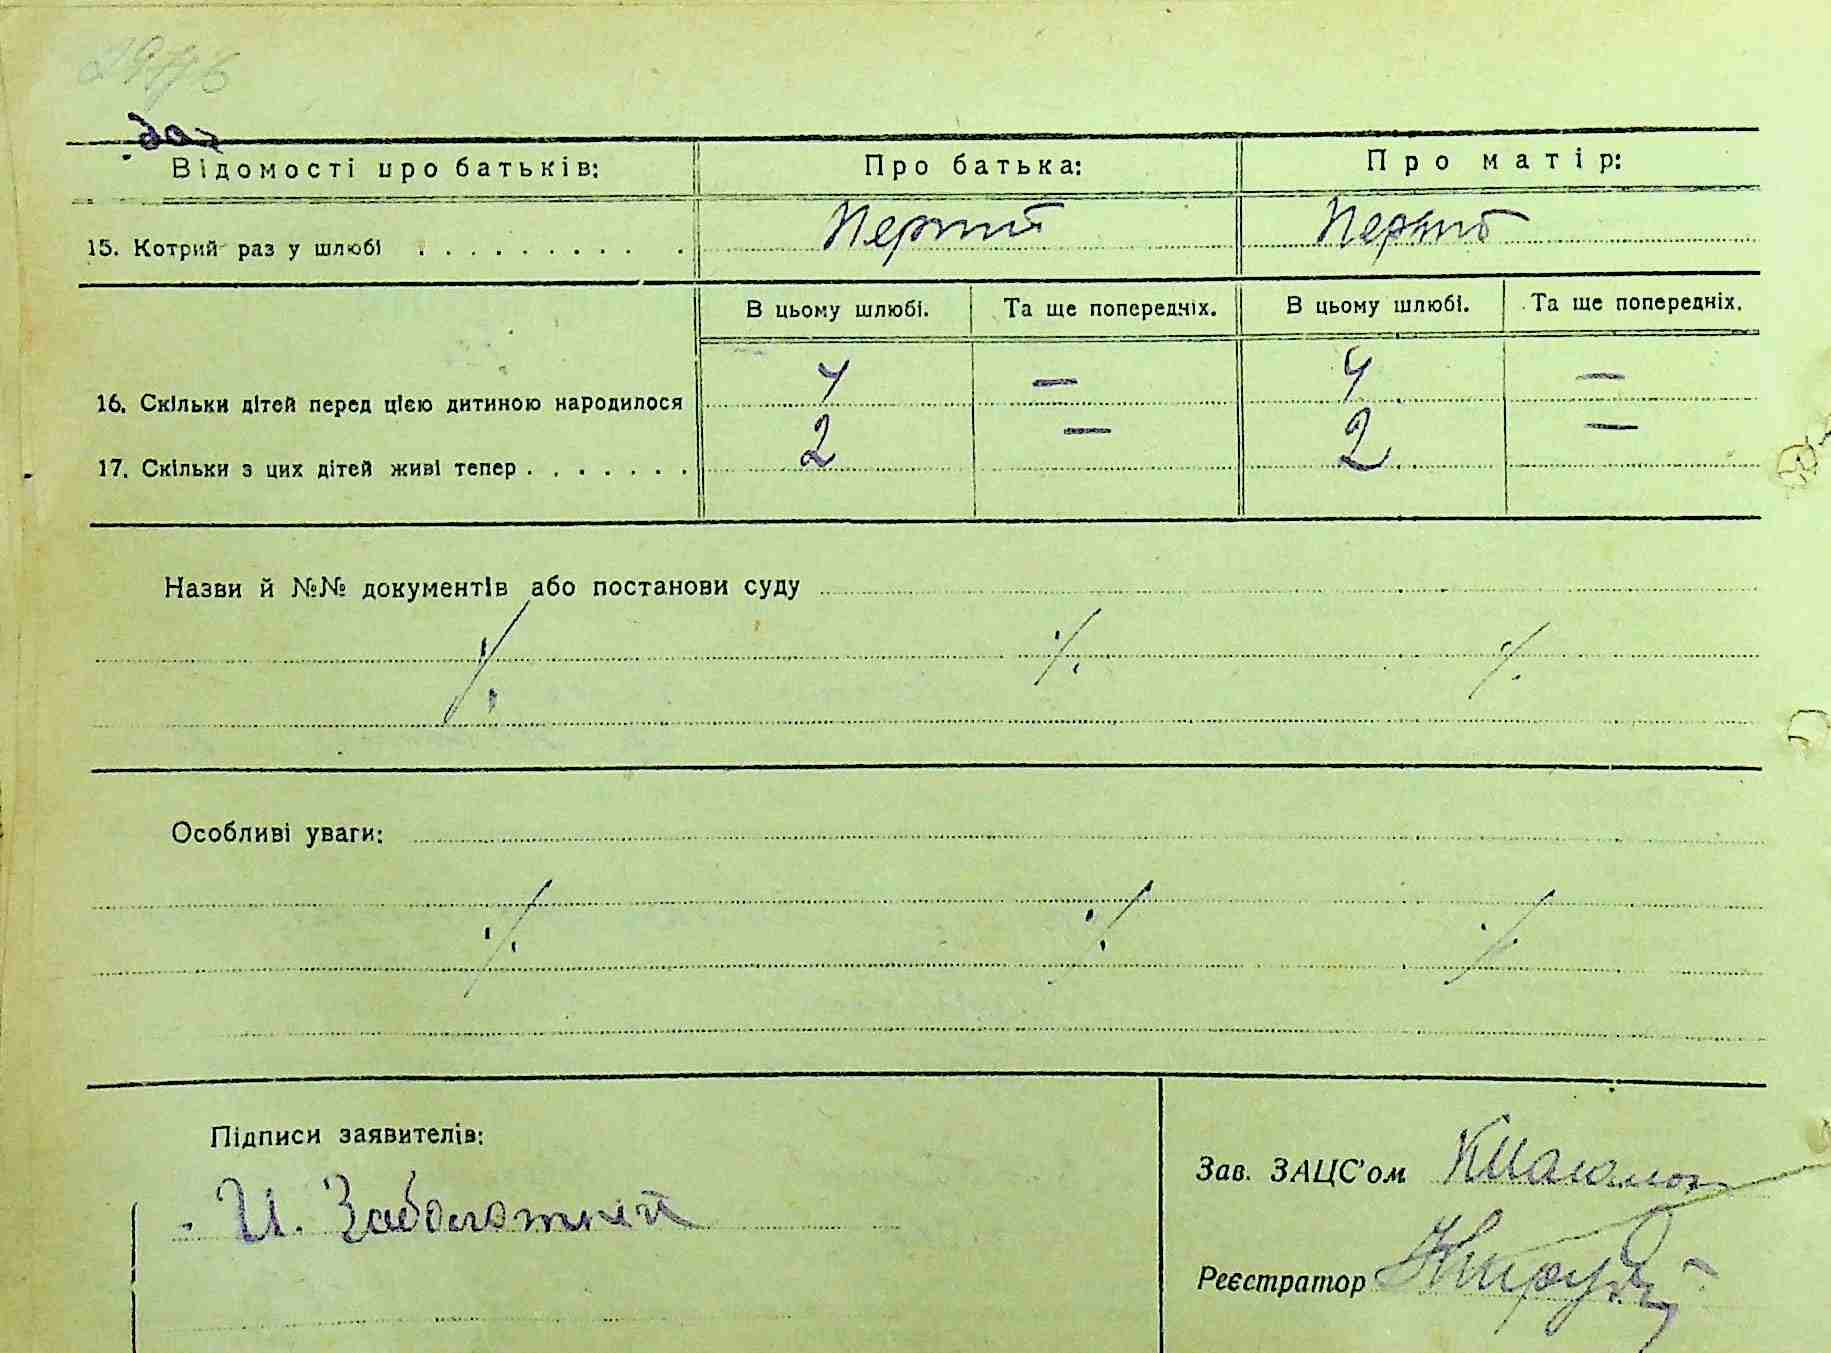 Відомості про батьків: Про батька: Про матір:
15. Котрий раз у шлюбі . . . . . . . . . . Перший
В цьому шлюбі. Та ще попередніх. В цьому шлюбі. Та ще попередніх.
16. Скільки дітей перед цією дитиною народилося 4 — 4 —
17. Скільки з цих дітей живі тепер . . . . . . . 2 — 2 —
Назви й №№ документів або постанови суду
Особливі уваги:
Підписи заявителів:
И. Заболотний
Зав. ЗАЦС'ом
Реєстратор